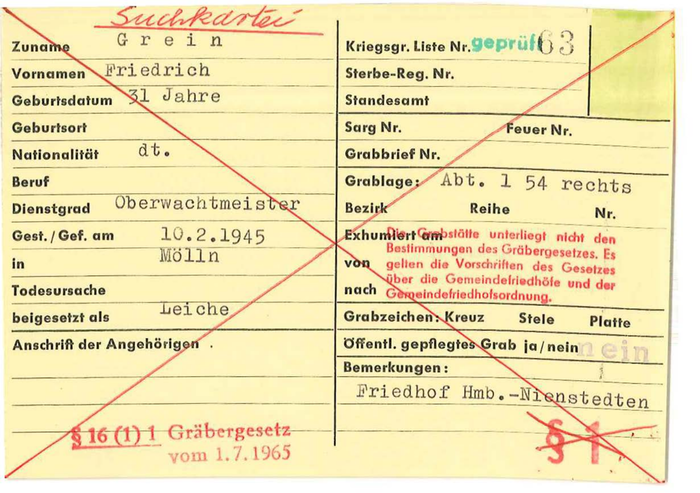 Suchkartei
Zuname Grein
Vornamen Friedrich
Geburtsdatum 31 Jahre
Geburtsort
Nationalität dt.
Beruf
Dienstgrad Oberwachtmeister
Gest./Gef. am 10.2.1945
in Mölln
Todesursache
beigesetzt als Leiche
Anschrift der Angehörigen .
§ 16 (1) 1 Gräbergesetz
vom 1.7.1965
Kriegsgr. Liste Nr. geprüft 63
Sterbe-Reg. Nr.
Standesamt
Sarg Nr. Feuer Nr.
Grabbrief Nr.
Grablage: Abt. 1 54 rechts
Bezirk Reihe Nr.
Exhumiert am
von
nach
Die Grabstätte unterliegt nicht den
Bestimmungen des Gräbergesetzes. Es
gelten die Vorschriften des Gesetzes
über die Gemeindefriedhöfe und der
Gemeindefriedhofsordnung.
Grabzeichen: Kreuz Stele Platte
Öffentl. gepflegtes Grab ja/nein nein
Bemerkungen:
Friedhof Hmb.-Nienstedten
§ 1